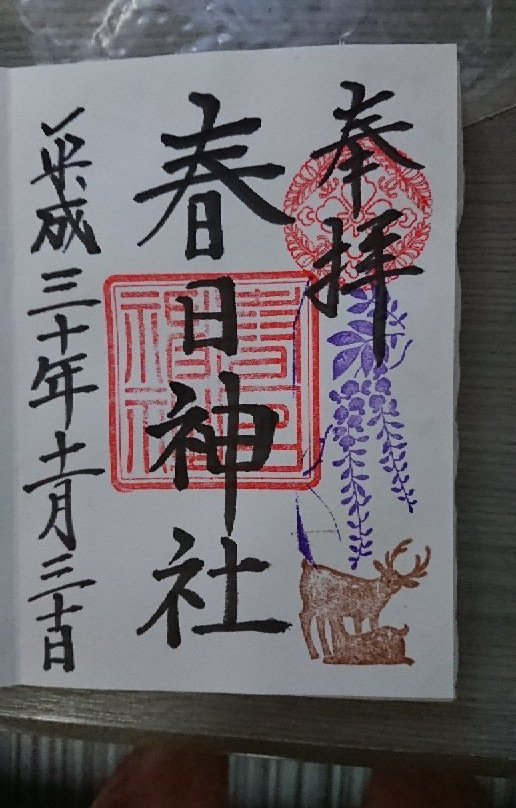 奉拝
春日神社
平成三十年十一月三十日